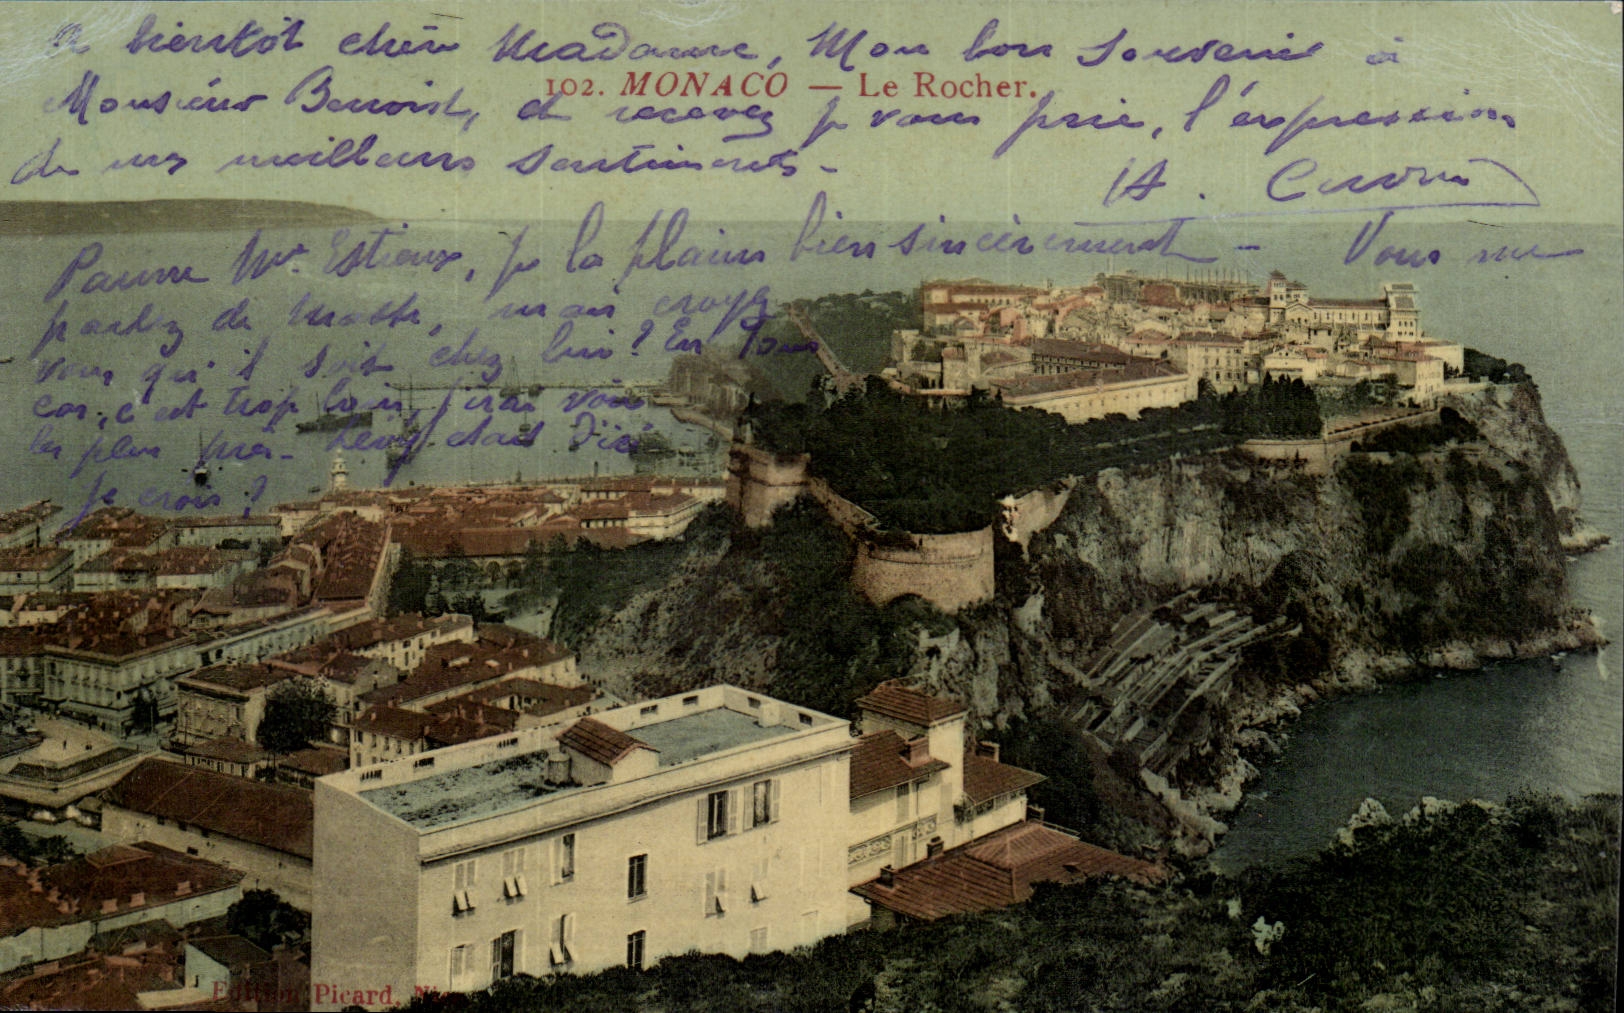 A bientôt chère Madame, Mon bon souvenir à
102. MONACO — Le Rocher.
Monsieur Benoist, et recevez je vous prie, l'expression
de mes meilleurs sentiments -
A.
Pauvre Me Estieux, je la plains bien sincèrement - Vous me
parlez de Watts, mais croyez
vous qu'il soit chez lui? En Tous
cas, c'est trop loin, j'irai voir
les plus près - d'ici
Je crois?
Edition Picard, Nice